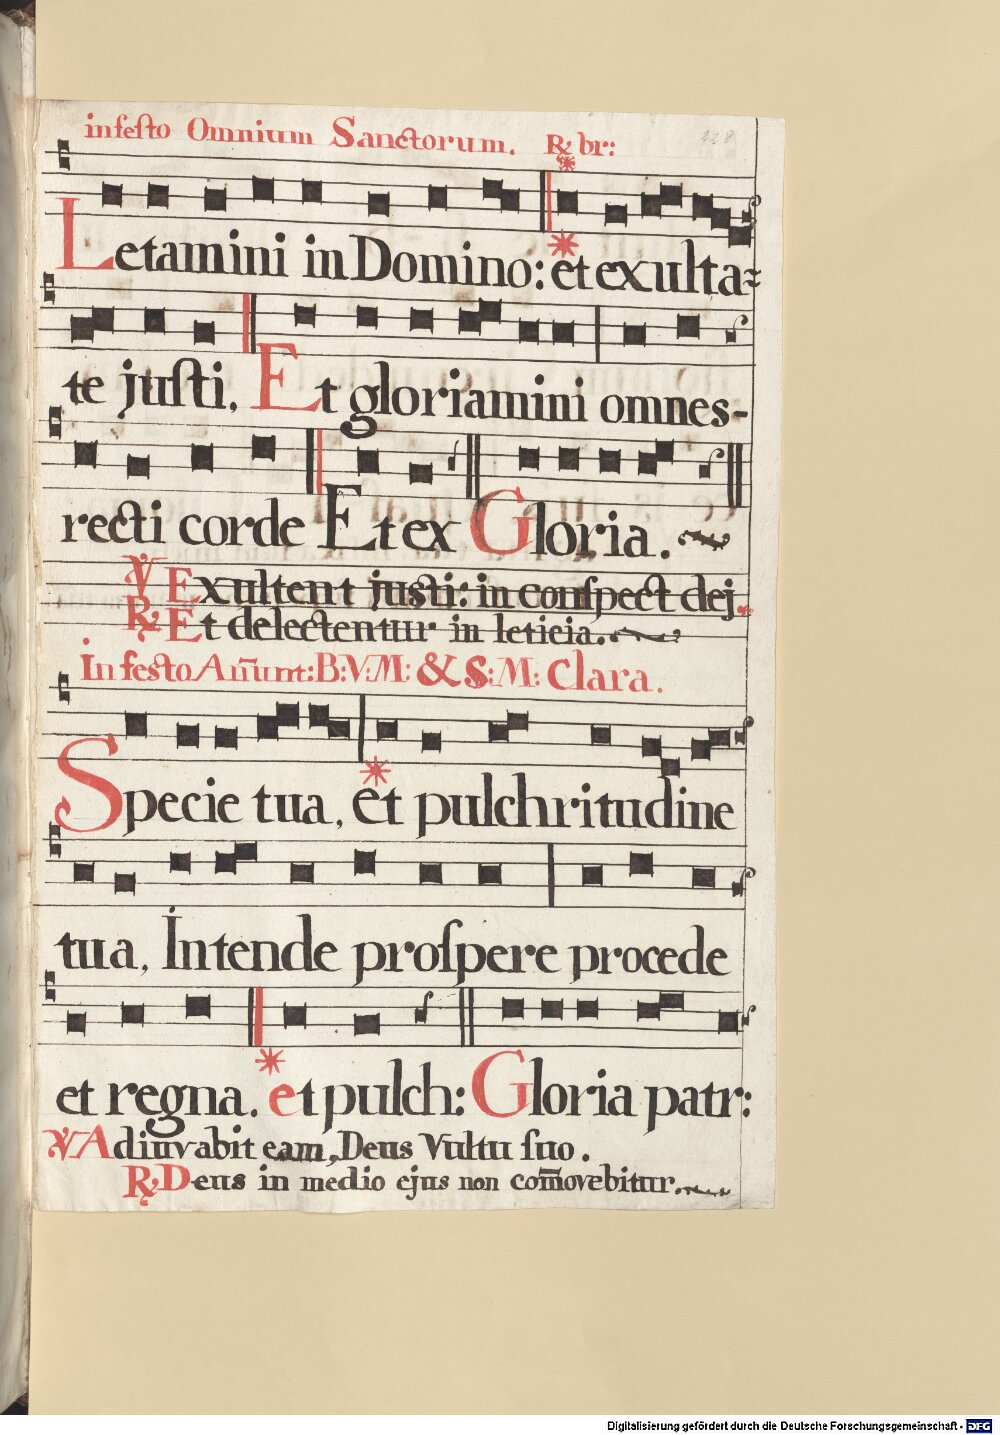 in festo Omnium Sanctorum. ℟ br:
228
Letamini in Domino: * et exulta-
te justi, Et gloriamini omnes-
recti corde Et ex Gloria.
℣ Exultent justi: in conspect dej.
℟ Et delectentur in leticia.
In festo An̄unt: B: V: M: & S: M: Clara.
Specie tua, * et pulchritudine
tua, Intende prospere procede
et regna. * et pulch: Gloria patr:
℣ Adiuvabit eam, Deus Vultu suo.
℟ Deus in medio ejus non com̄ovebitur.
Digitalisierung gefördert durch die Deutsche Forschungsgemeinschaft - DFG